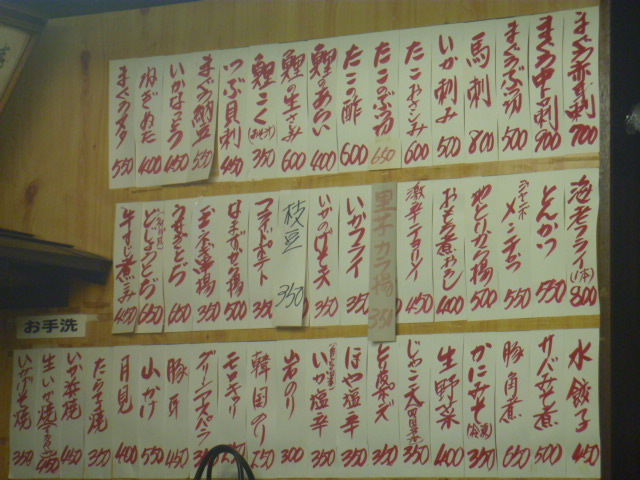 まぐろ赤身刺 700
まぐろ中口刺 900
まぐろぶつ切 500
馬刺 800
いか刺み 500
たこおさしみ 600
たこのぶつ切 650
たこの酢 600
鯉のあらい 400
鯉の生さしみ 600
鯉こく 350
つぶ貝刺 450
まぐろ納豆 550
いかなっとう 450
ねぎぬた 400
まぐろヌタ 550
海老フライ(1本) 800
とんかつ 550
ジャンボメンチカツ 550
地とりから揚 500
おもち煮おろし 400
激辛 450
里芋カラ揚 350
いかフライ 350
いかのげそ天 350
枝豆 350
フライドポテト 350
はまぎから揚 500
玉ネギ揚 350
うなぎとじ 650
どじょうとじ 650
牛すじ煮こみ 450
お手洗
水餃子 450
サバみそ煮 500
豚角煮 650
かにみそ 350
生野菜 400
じゃこ天 350
とり皮ポンズ 350
ほや塩辛 350
いか塩辛 350
岩のり 300
韓国のり 250
モロキュウ
グリーンアスパラ 350
豚耳 450
山かけ 550
月見 400
たらこ焼 350
いか浜焼 450
生いか焼 450
いかげそ焼 350